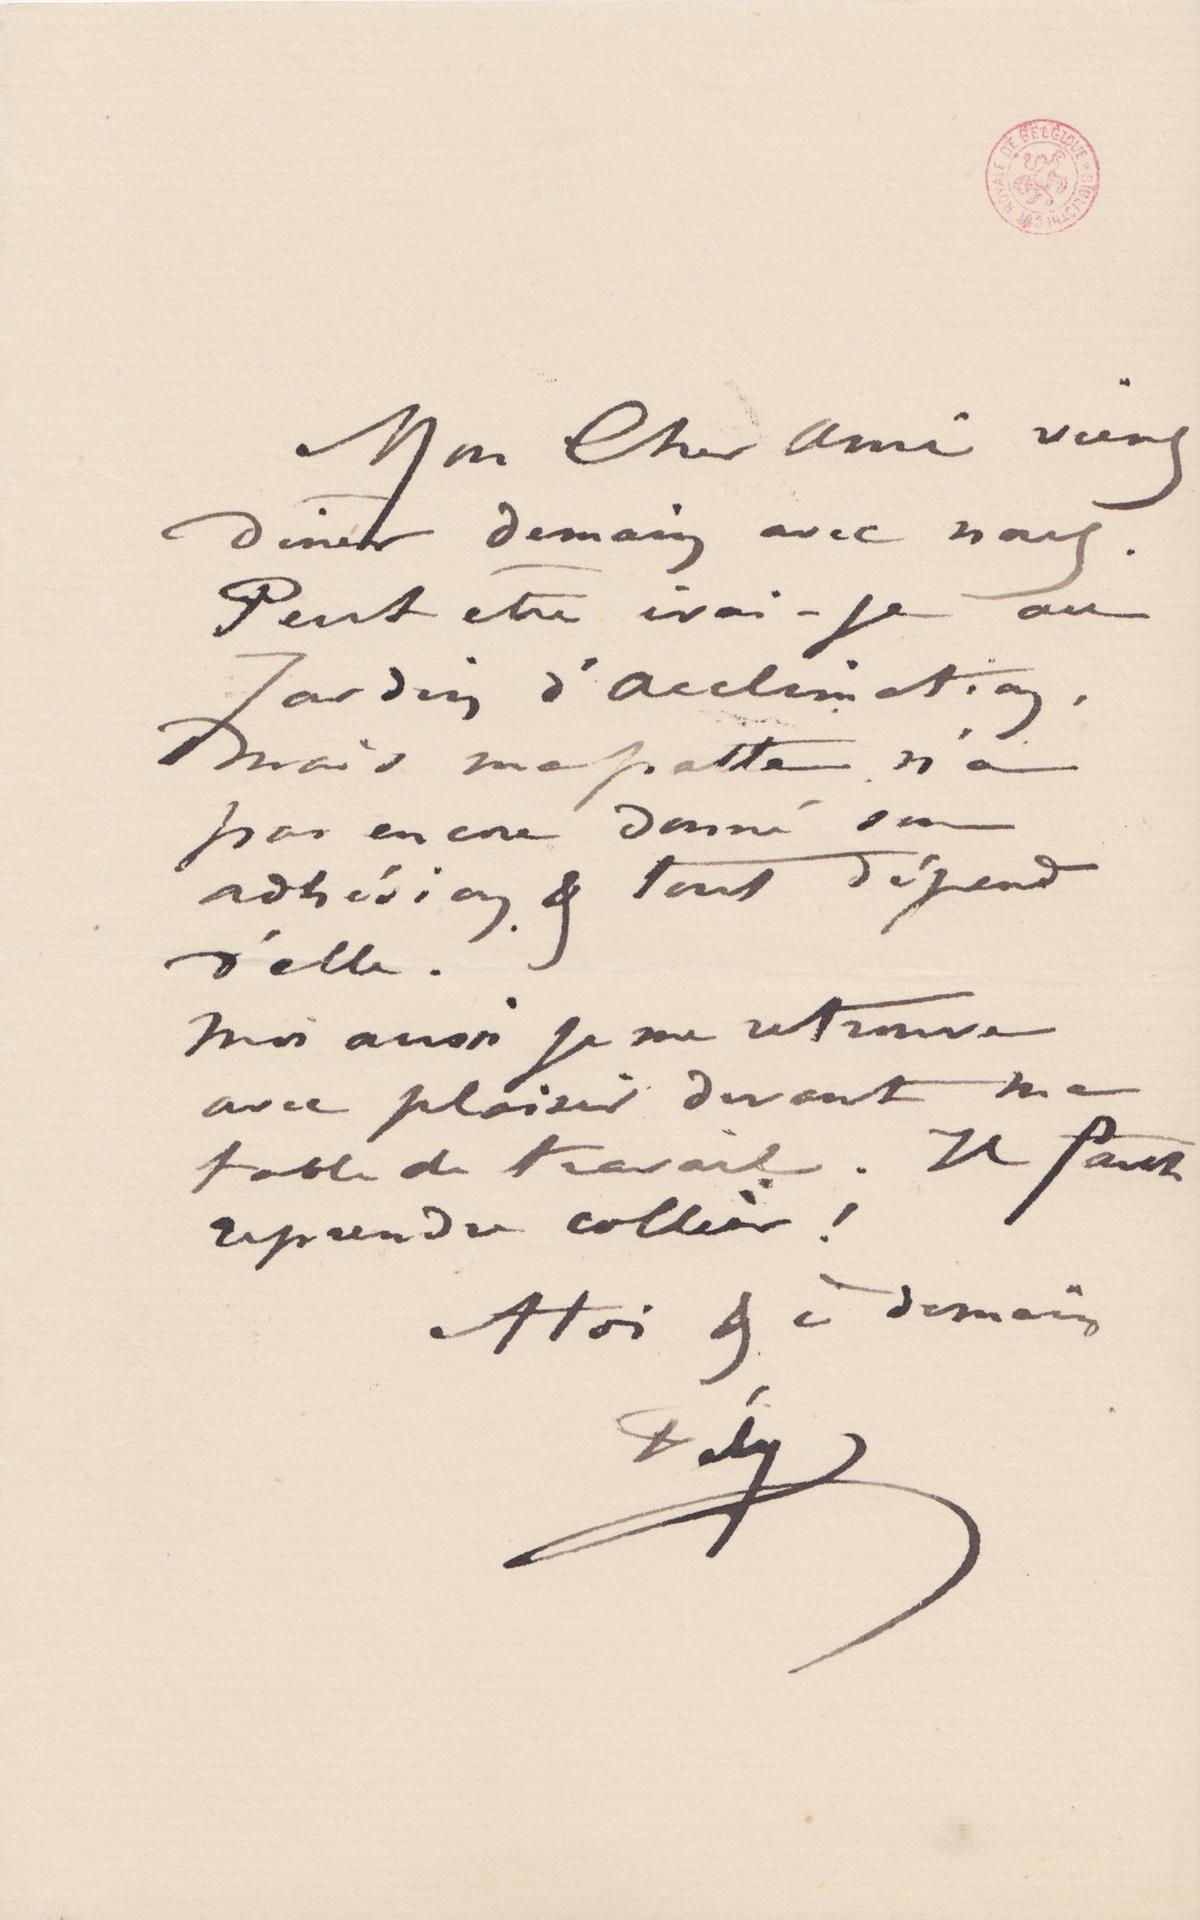 BIBLIOTHÈQUE ROYALE DE BELGIQUE
Mon Cher Ami viens
diner demain avec nous.
Peut être irai-je au
Jardin d'Acclimation,
Mais ma patte n'a
pas encore donné son
adhésion, & tout dépend
d'elle.
Moi aussi je me retrouve
avec plaisir devant ma
table de travail. Il faut
reprendre collier !
A toi & à demain
Fély